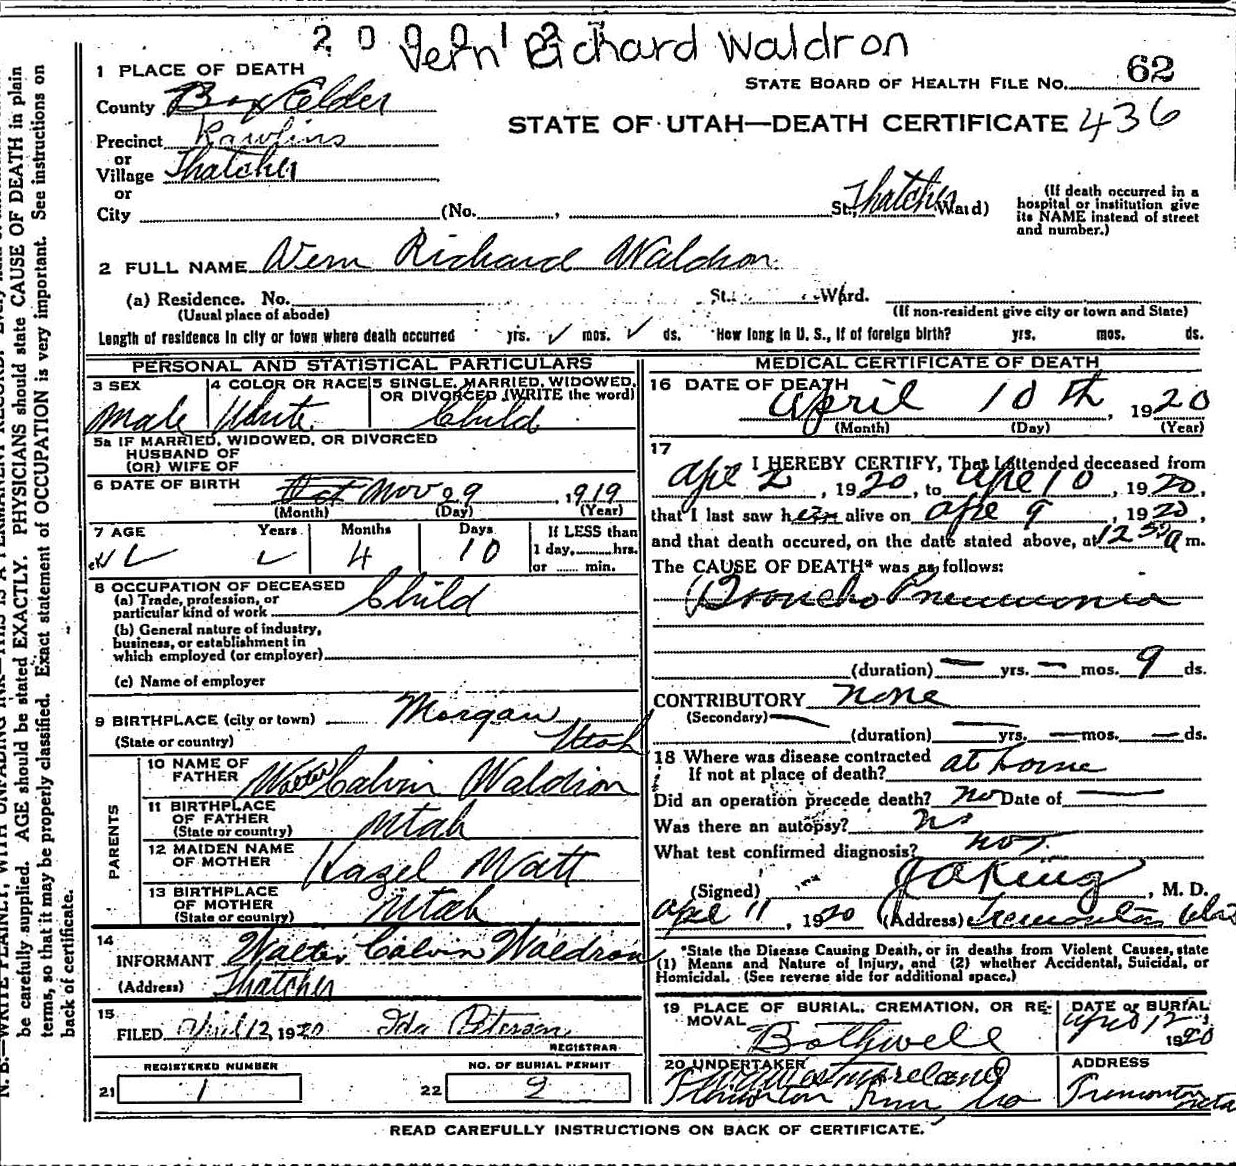 Vern Richard Waldron
1 PLACE OF DEATH
STATE BOARD OF HEALTH FILE NO. 62
County Box Elder
STATE OF UTAH—DEATH CERTIFICATE 436
Precinct Rawlins
or
Village Thatcher
or
City (No. , St., Thatcher Ward)
(If death occurred in a hospital or institution give its NAME instead of street and number.)
2 FULL NAME Vern Richard Waldron
(a) Residence. No. St. Ward.
(Usual place of abode) (If non-resident give city or town and State)
Length of residence in city or town where death occurred yrs. mos. ds. How long in U. S., if of foreign birth? yrs. mos. ds.
PERSONAL AND STATISTICAL PARTICULARS
3 SEX Male
4 COLOR OR RACE White
5 SINGLE, MARRIED, WIDOWED, OR DIVORCED (WRITE the word) Child
5a IF MARRIED, WIDOWED, OR DIVORCED
HUSBAND OF
(OR) WIFE OF
6 DATE OF BIRTH Oct Nov 29, 1919
(Month) (Day) (Year)
7 AGE Years Months 4 Days 10
If LESS than 1 day, hrs. or min.
8 OCCUPATION OF DECEASED
(a) Trade, profession, or particular kind of work Child
(b) General nature of industry, business, or establishment in which employed (or employer)
(c) Name of employer
9 BIRTHPLACE (city or town) Morgan
(State or country) Utah
PARENTS
10 NAME OF FATHER Walter Calvin Waldron
11 BIRTHPLACE OF FATHER (State or country) Utah
12 MAIDEN NAME OF MOTHER Hazel Watt
13 BIRTHPLACE OF MOTHER (State or country) Utah
14 INFORMANT Walter Calvin Waldron
(Address) Thatcher
15 FILED April 12, 1920 Ida Peterson
REGISTRAR
REGISTERED NUMBER
21 1
NO. OF BURIAL PERMIT
22 9
MEDICAL CERTIFICATE OF DEATH
16 DATE OF DEATH April 10th, 1920
(Month) (Day) (Year)
17 I HEREBY CERTIFY, That I attended deceased from
Apr 2, 1920, to Apr 10, 1920,
that I last saw him alive on Apr 9, 1920,
and that death occured, on the date stated above, at 12 50 a m.
The CAUSE OF DEATH* was as follows:
Broncho Pneumonia
(duration) — yrs. — mos. 9 ds.
CONTRIBUTORY none
(Secondary)
(duration) — yrs. — mos. — ds.
18 Where was disease contracted
If not at place of death? at home
Did an operation precede death? no Date of —
Was there an autopsy? no
What test confirmed diagnosis? not
(Signed) , M. D.
Apr 11, 1920 (Address) Tremonton Utah
*State the Disease Causing Death, or in deaths from Violent Causes, state
(1) Means and Nature of Injury, and (2) whether Accidental, Suicidal, or
Homicidal. (See reverse side for additional space.)
19 PLACE OF BURIAL, CREMATION, OR REMOVAL Bothwell
DATE OF BURIAL April 12 1920
20 UNDERTAKER
ADDRESS Tremonton Utah
READ CAREFULLY INSTRUCTIONS ON BACK OF CERTIFICATE.
be carefully supplied. AGE should be stated EXACTLY. PHYSICIANS should state CAUSE OF DEATH in plain
terms, so that it may be properly classified. Exact statement of OCCUPATION is very important. See instructions on
back of certificate.